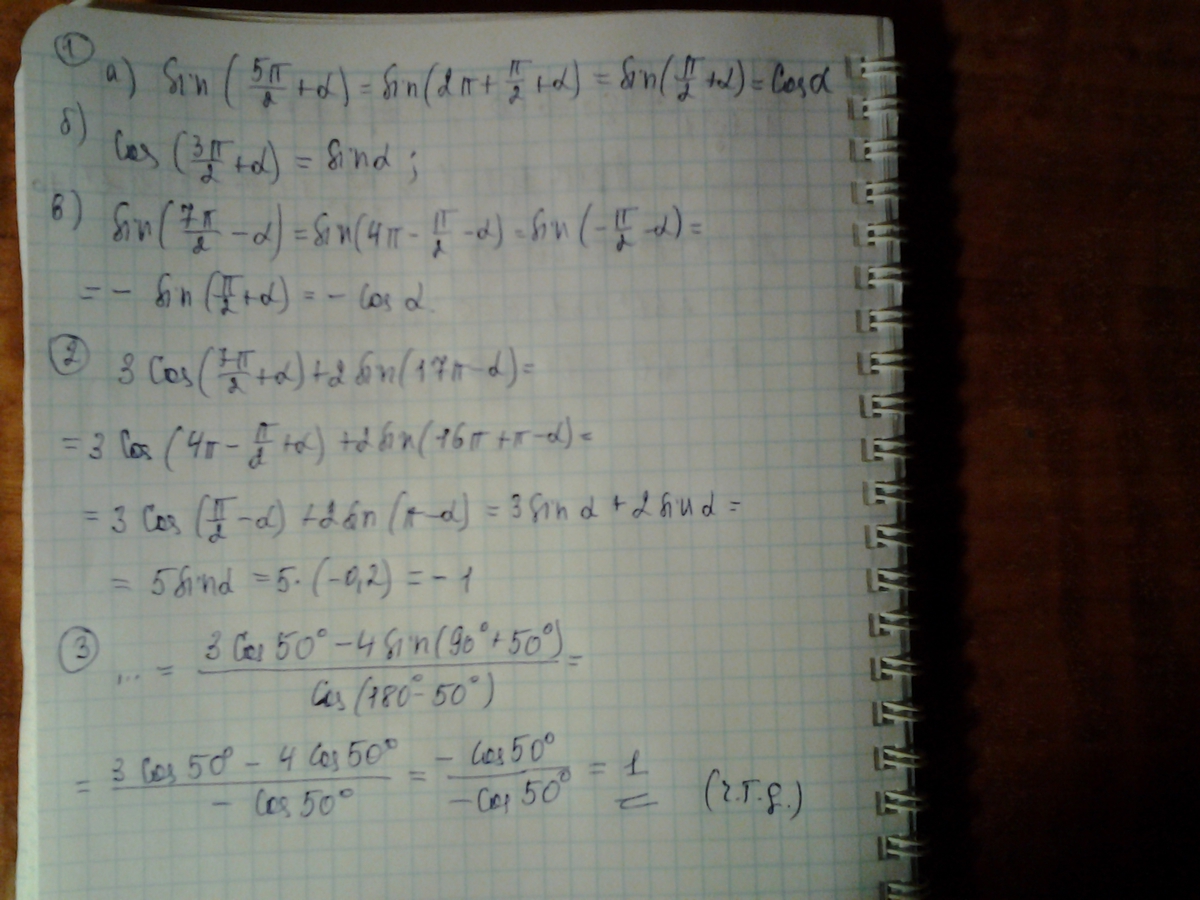 1
а) sin (5π/2 + α) = sin(2π + π/2 + α) = sin(π/2 + α) = cos α
б) cos (3π/2 + α) = sin α ;
в) sin (7π/2 - α) = sin(4π - π/2 - α) = sin (-π/2 - α) =
= - sin (π/2 + α) = - cos α.
2 3 cos(7π/2 + α) + 2 sin(17π - α) =
= 3 cos (4π - π/2 + α) + 2 sin(16π + π - α) =
= 3 cos (π/2 - α) + 2 sin (π - α) = 3 sin α + 2 sin α =
= 5 sin α = 5 · (-0,2) = - 1
3 ... = (3 cos 50° - 4 sin(90° + 50°)) / (cos (180° - 50°)) =
= (3 cos 50° - 4 cos 50°) / (- cos 50°) = (- cos 50°) / (- cos 50°) = 1 (ч.т.д.)